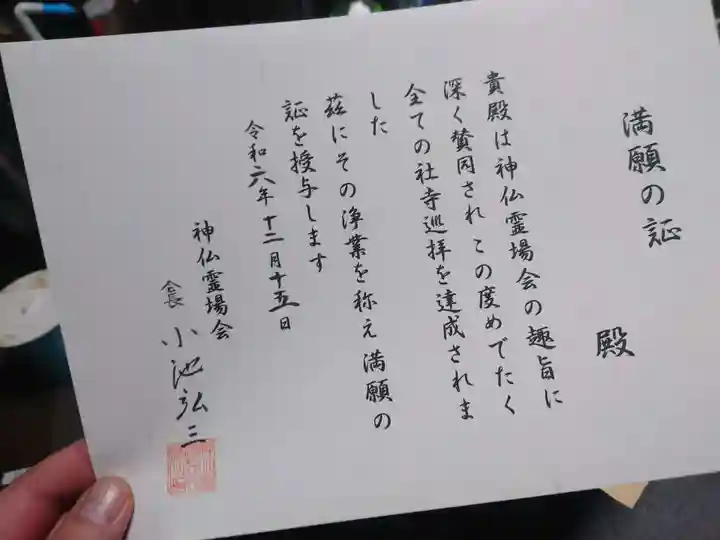 満願の証
殿
貴殿は神仏霊場会の趣旨に
深く賛同されこの度めでたく
全ての社寺巡拝を達成されま
した
茲にその浄業を称え満願の
証を授与します
令和六年十二月十五日
神仏霊場会
会長 小池弘三